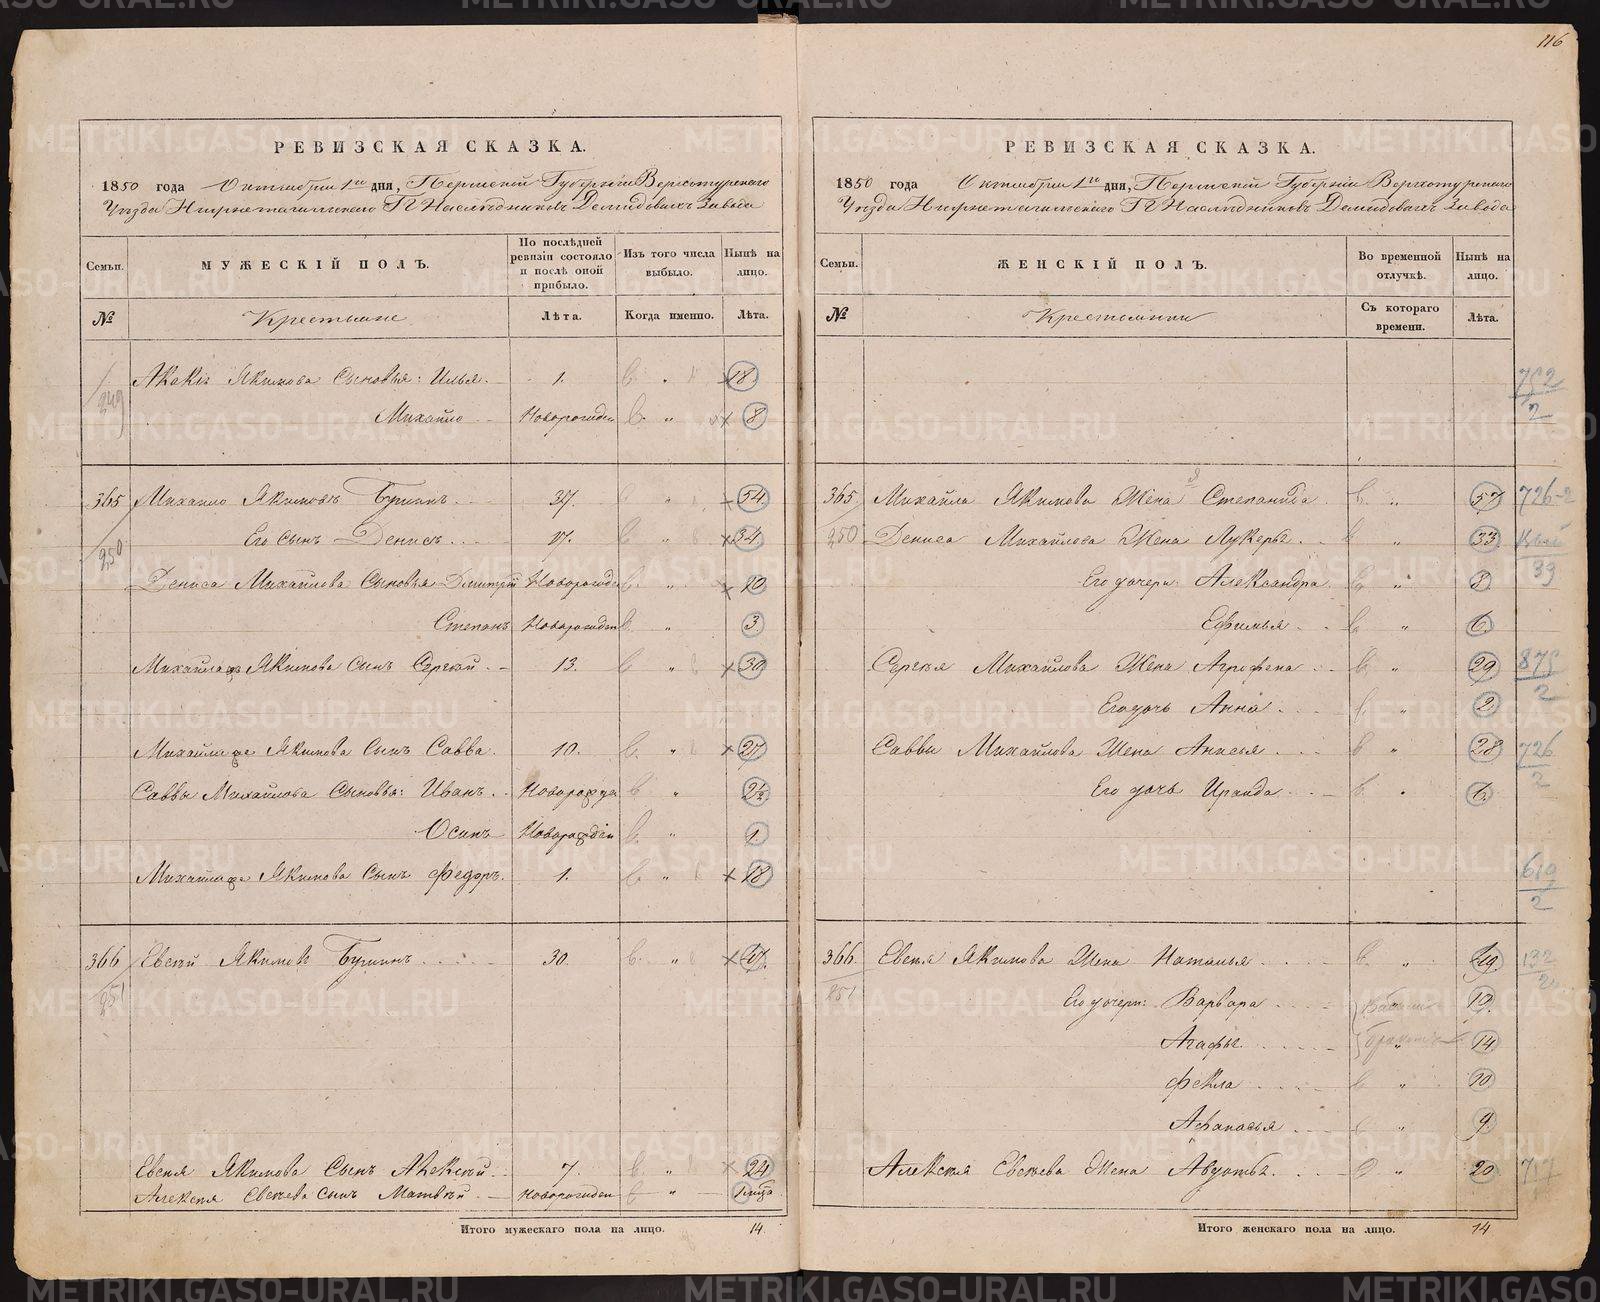 116
РЕВИЗСКАЯ СКАЗКА.
1850 года Октября 1го дня, Пермской Губерніи Верхотурскаго
Уезда Нижнетагильскаго Г.г. Наследниковъ Демидовыхъ Завода
Семьи. МУЖЕСКІЙ ПОЛЪ. По послѣдней ревизіи состояло и послѣ оной прибыло. Изъ того числа выбыло. Нынѣ на лицо.
№ Крестьяне Лѣта. Когда именно. Лѣта.
249 Якима сыновья: Илья 1. 18
Михайло Новорожден 8
365 Михаило Якимовъ 37. 54
250 Его сынъ Денисъ 17. 34
Дениса Михайлова сыновья Дмитрій Новорожден 10
Степанъ Новорожден 3
Михайла же Якимова сынъ Сергѣй 13. 30
Михайла же Якимова сынъ Савва 10. 27
Саввы Михайлова сыновья: Иванъ Новорожден 2½
Осипъ Новорожден 1.
Михайла же Якимова сынъ Федоръ. 1. 18
366 Евсѣй Якимовъ 30. 47
251
Евсѣя Якимова сынъ Алексѣй 7. 24
Алексѣя Евсѣева сынъ Матвѣй Новорожден
Итого мужескаго пола на лицо. 14
РЕВИЗСКАЯ СКАЗКА.
1850 года Октября 1го дня, Пермской Губерніи Верхотурскаго
Уезда Нижнетагильскаго Г.г. Наследниковъ Демидовыхъ Завода
Семьи. ЖЕНСКІЙ ПОЛЪ. Во временной отлучкѣ. Нынѣ на лицо.
№ Крестьянки Съ котораго времени. Лѣта.
752/2
365 Михайла Якимова жена Степанида 57 726-2
250 Дениса Михайлова жена Лукерья 33
Его дочери: Александра 8 39
Ефимья 6.
Сергѣя Михайлова жена Агрофена 29 875/2
Его дочь Анна 2
Саввы Михайлова жена Анисья 28 726/2
Его дочь Ираида 6.
619/2
366. Евсѣя Якимова жена Наталья 49 132/2
251 Его дочери: Варвара 19.
Агафья 14
Фекла 10
Афанасья 9.
Алексѣя Евсѣева жена Авдотья 20 717
Итого женскаго пола на лицо. 14
METRIKI.GASO-URAL.RU